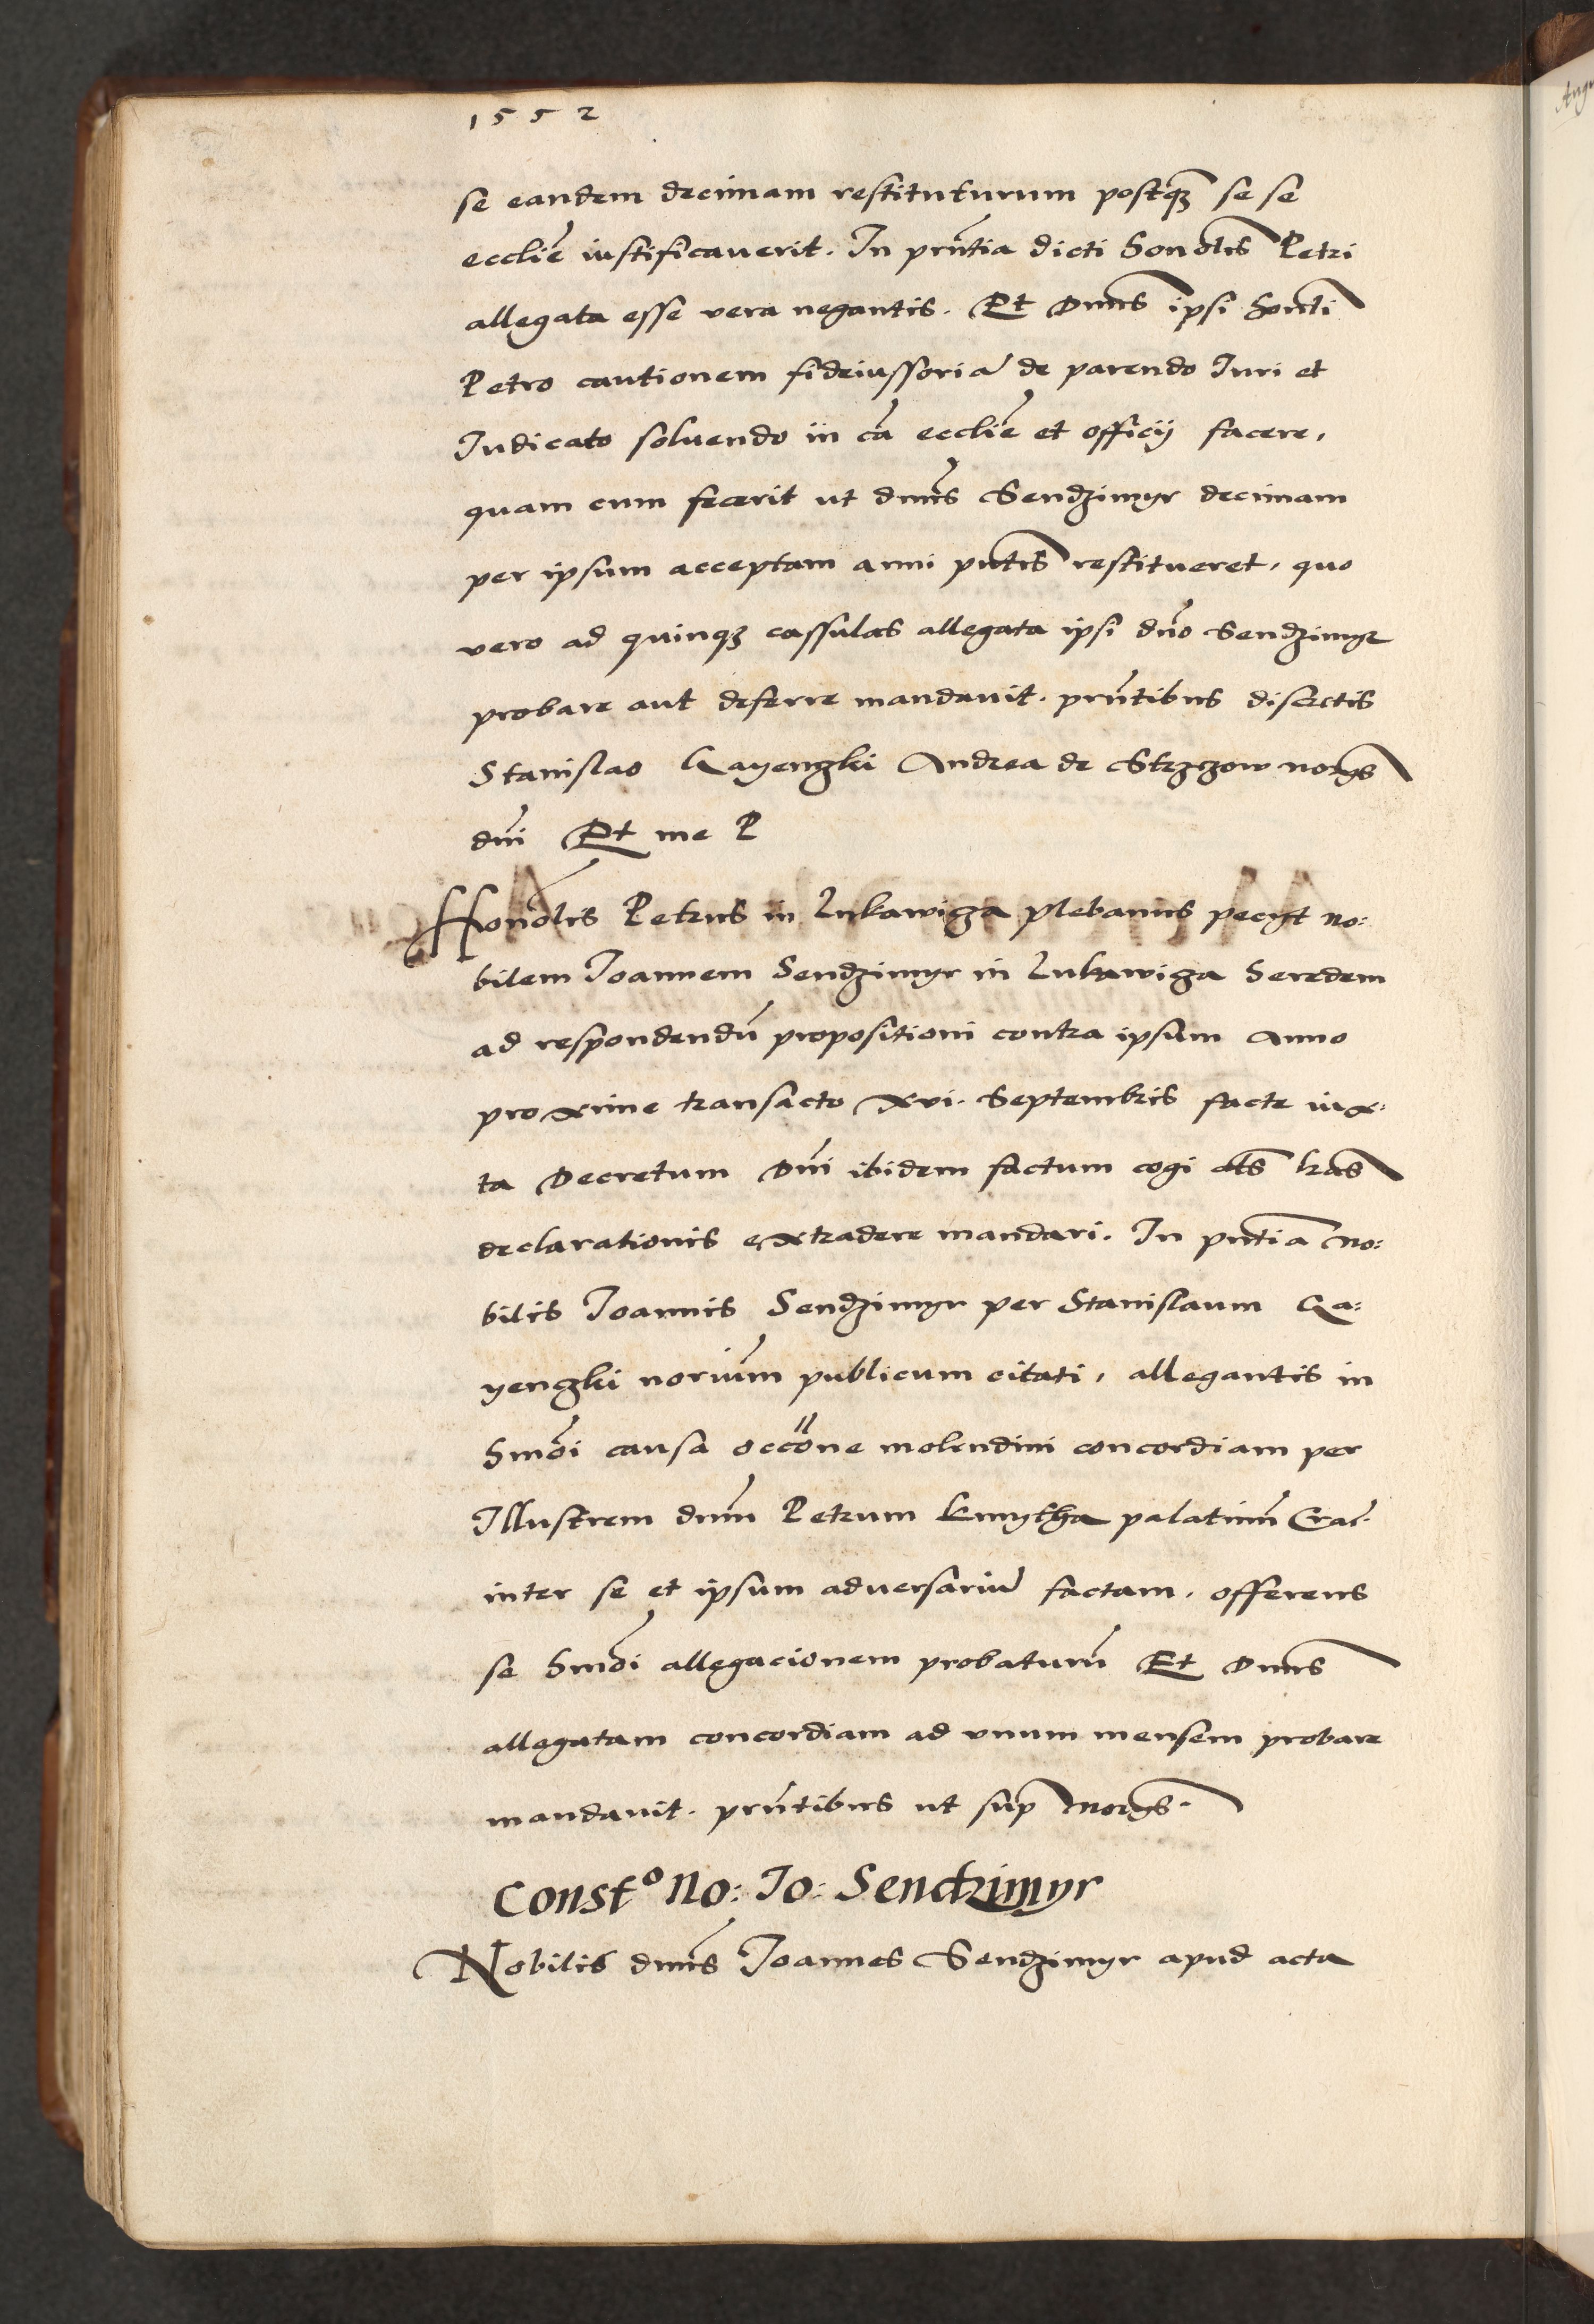 1552
se eandem decimam restituturum postq̃ se se
eccliẽ iustificaverit. In prñtia dicti Honolis Petri
allegata esse vera negantis. Et Dnus ipsi honli
Petro cautionem fideiussoriã de parendo Iuri et
Iudicato solvendo in cã eccliẽ et officij facere,
quam cum fecerit ut dnus Sendzimyr decimam
per ipsum acceptam anni pntis restitueret, quo
vero ad quinqz cassulas allegata ipsi dno Sendzimyr
probare aut deferre mandavit. prñtibus discretis
Stanislao Gayenzki Andrea de Strzezow norijs
dni Et me P
Honolis Petrus in Lukawiza plebanus pecyt no:
bilem Joannem Sendzimyr in Lukawiza heredem
ad respondendũ propositioni contra ipsum Anno
proxime transacto xvi. Septembris facte iux:
ta Decretum Dni ibidem factum cogi als lras
declarationis extradere mandari. In pntia No:
bilis Joannis Sendzimyr per Stanislaum Ga:
yenzki norium publicum citati, allegantis in
hmoi causa occõne molendini concordiam per
Illustrem dnum Petrum Kmytha palatinũ Crac.
inter se et ipsum adversariũ factam. offerens
se hmoi allegacionem probaturũ Et Dnus
allegatam concordiam ad unum mensem probare
mandavit. prñtibus ut sup norijs.
Const° No: Jo: Sendzimyr
Nobilis dnus Joannes Sendzimyr apud acta